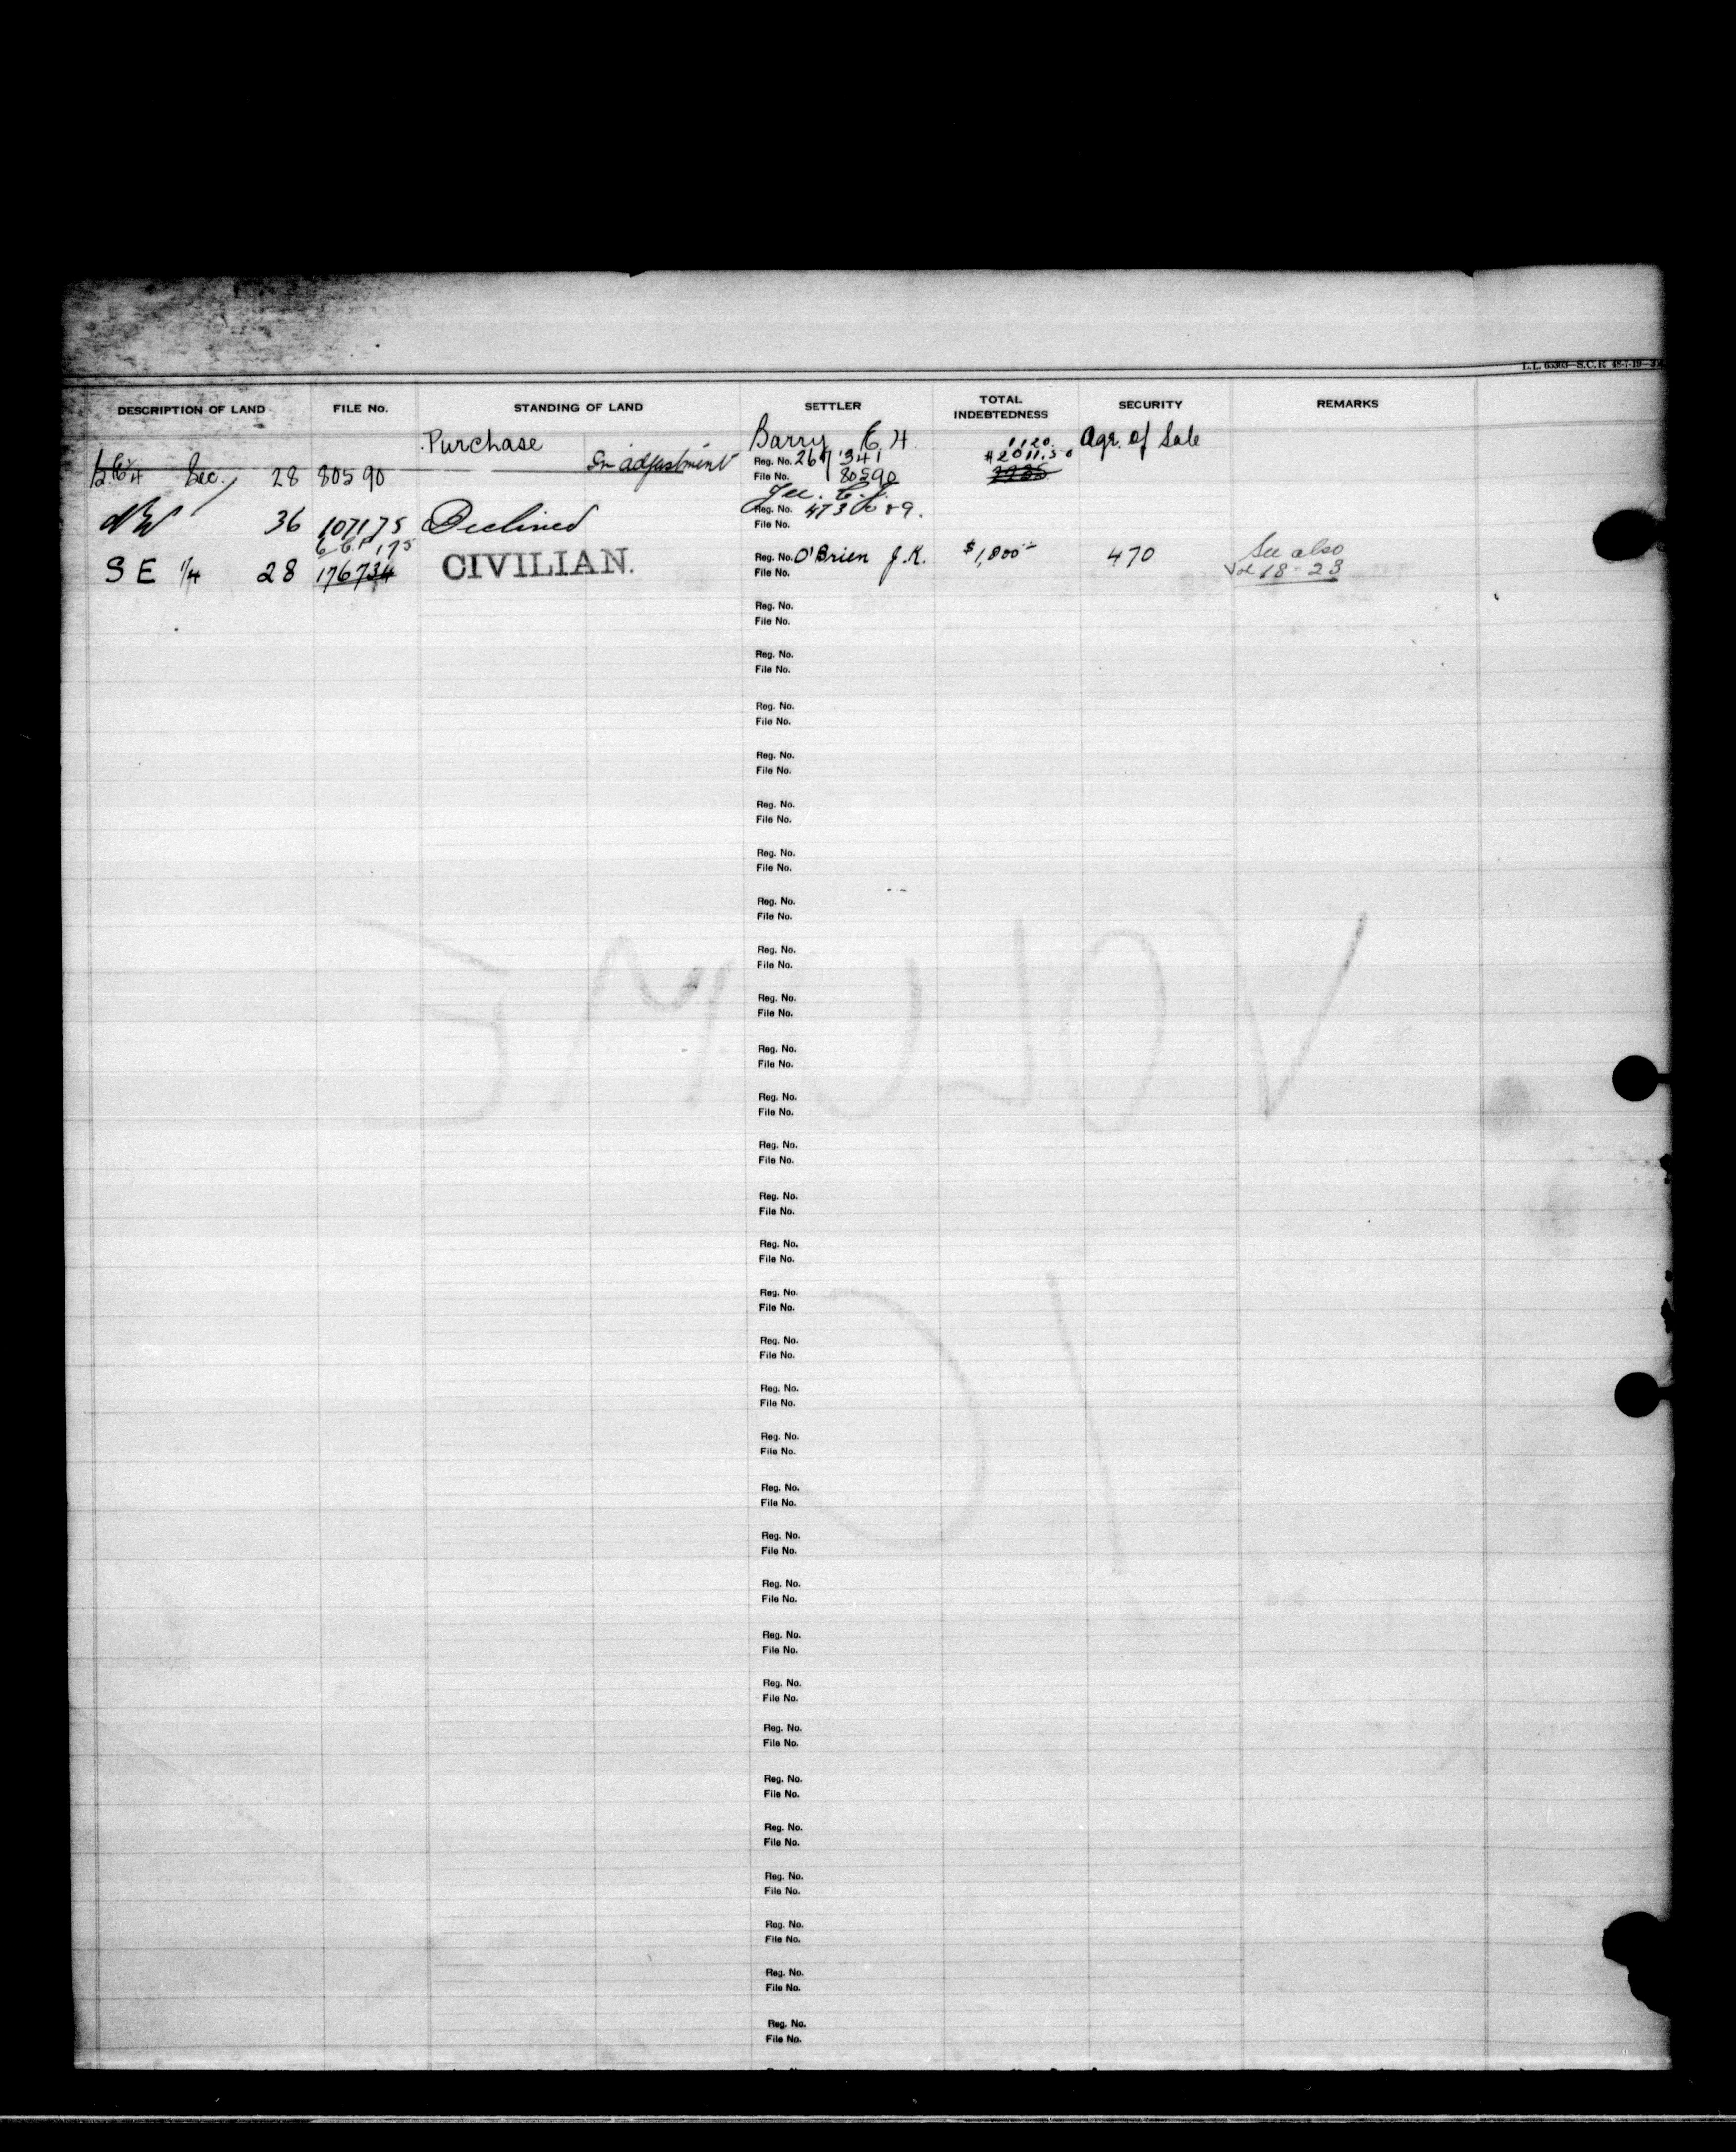 L.L. 65303—S.C.R. 48-7-19—
DESCRIPTION OF LAND FILE No. STANDING OF LAND SETTLER TOTAL INDEBTEDNESS SECURITY REMARKS
Purchase Barry 1120. Agr. of Sale
In adjustment Reg. No. 267341 $2011.50
Sec. 28 80590 File No. 80590
36 107175 Declined Reg. No.
File No.
C.C.P. 175
SE 1/4 28 176734 CIVILIAN. Reg. No. O'Brien J.K. $1,800 470 See also
File No. Vol 18-23
Reg. No.
File No.
Reg. No.
File No.
Reg. No.
File No.
Reg. No.
File No.
Reg. No.
File No.
Reg. No.
File No.
Reg. No.
File No.
Reg. No.
File No.
Reg. No.
File No.
Reg. No.
File No.
Reg. No.
File No.
Reg. No.
File No.
Reg. No.
File No.
Reg. No.
File No.
Reg. No.
File No.
Reg. No.
File No.
Reg. No.
File No.
Reg. No.
File No.
Reg. No.
File No.
Reg. No.
File No.
Reg. No.
File No.
Reg. No.
File No.
Reg. No.
File No.
Reg. No.
File No.
Reg. No.
File No.
Reg. No.
File No.
Reg. No.
File No.
Reg. No.
File No.
Reg. No.
File No.
Reg. No.
File No.
VOLUME